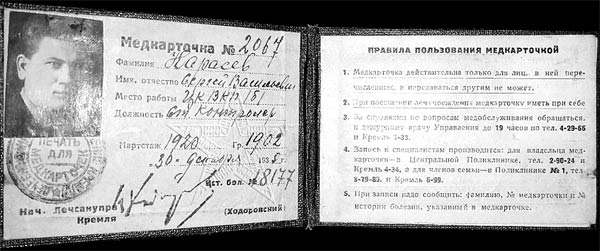 Медкарточка № 2067
Фамилия Карасев
Имя, отчество Сергей Васильевич
Место работы Цк ВКП(б)
Должность От Контролер
Партстаж 1920 Гр 1902
30 декабря 1935 г.
Ист. бол. № 18177
Нач. Лечсанупра Кремля
(Ходоровский)
ПЕЧАТЬ
ДЛЯ
МЕДКАРТОЧЕК
ПРАВИЛА ПОЛЬЗОВАНИЯ МЕДКАРТОЧКОЙ
1. Медкарточка действительна только для лиц, в ней пере-
численных, и передаваться другим не может.
2. При посещении лечучреждение медкарточку иметь при себе
3. За справками по вопросам медобслуживания обращаться
к дежурному врачу Управления до 19 часов по тел. 4-29-66
и Кремль 1-33.
4. Запись к специалистам производится: для владельца мед-
карточки — в Центральной Поликлинике, тел. 2-90-24 и
Кремль 4-34, а для членов семьи — в Поликлинике № 1, тел.
5-79-85, и Кремль 6-99.
5. При записи надо сообщить: фамилию, № медкарточки и №
истории болезни, указанный в медкарточке.